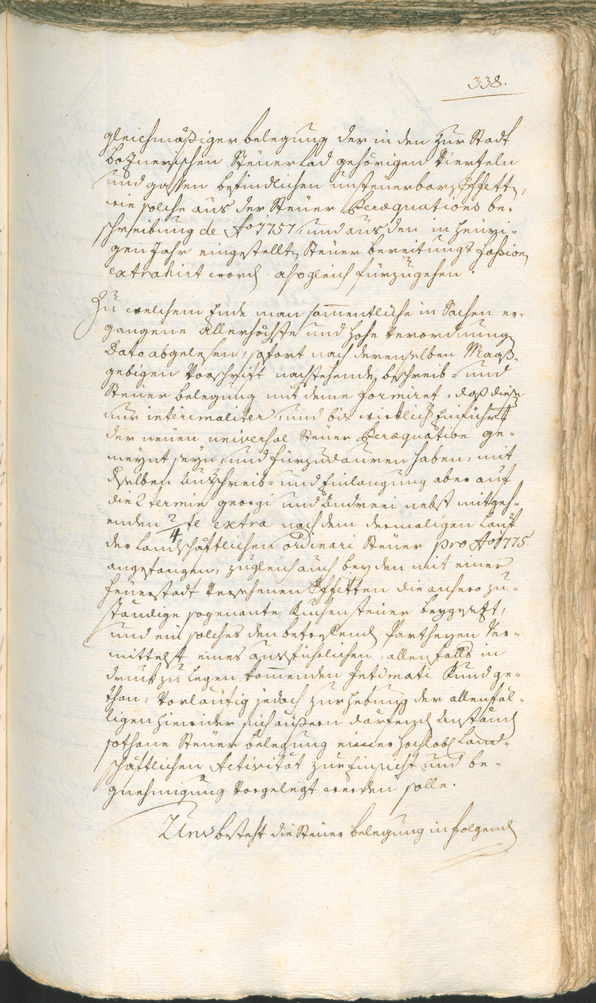 338.
gleichmäßiger belegung der in den zur Stadt
boznerischen Steuer Lad gehörigen Vierteln
und gassen befindlichen unsteuerbar Effectn,
wie solche aus der Steuer Peraequations be-
schreibung de Ao 1757, und aus den in heuri-
gen Jahr eingestellt Steuer bereitungs Fassion
extrahirt word alsogleich fürzugehen.
Zu welchem Ende man sammentliche in Sachen er-
gangene Allerhöchste und hohe Verordnung
Dato abgelesen, sofort nach derenselben Maaß-
gebigen Vorschrift nachstehende beschreib- und
Steuer belegung mit deme formiret, daß diese
nur interimaliter, und bis wirklich Einführ
der neuen universal Steuer Peraequation ge-
meynt seyn, und fürzudauren haben, mit
derselben Ausschreib- und Einlangung aber auf
die 2 termin georgi und Andreei nebst mitgeh-
enden 2/4 tl extra nach dem dermaligen Lauf
der Landschaftlichen ordinari Steuer pro Ao 1775
angefangen, zugleich auch bey den mit einer
Feuerstadt versehenen Effecten die anhero zu-
ständige sogenante Kuchensteuer beygesezt,
und ein solches den betreffend Partheyen ver-
mittelst eines ausführlichen, allenfalls in
druck zu legen kommenden Intimati kund ge-
than, Vorläufig jedoch zur hebung der allenfäl-
ligen hierwider sich äußern Anständ
sothane Steuer belegung einer hochlobl Land-
schäftlichen Activität zur Einsicht und be-
gnehmigung vorgelegt werden solle.
Und besteht die Steuer belegung in folgend